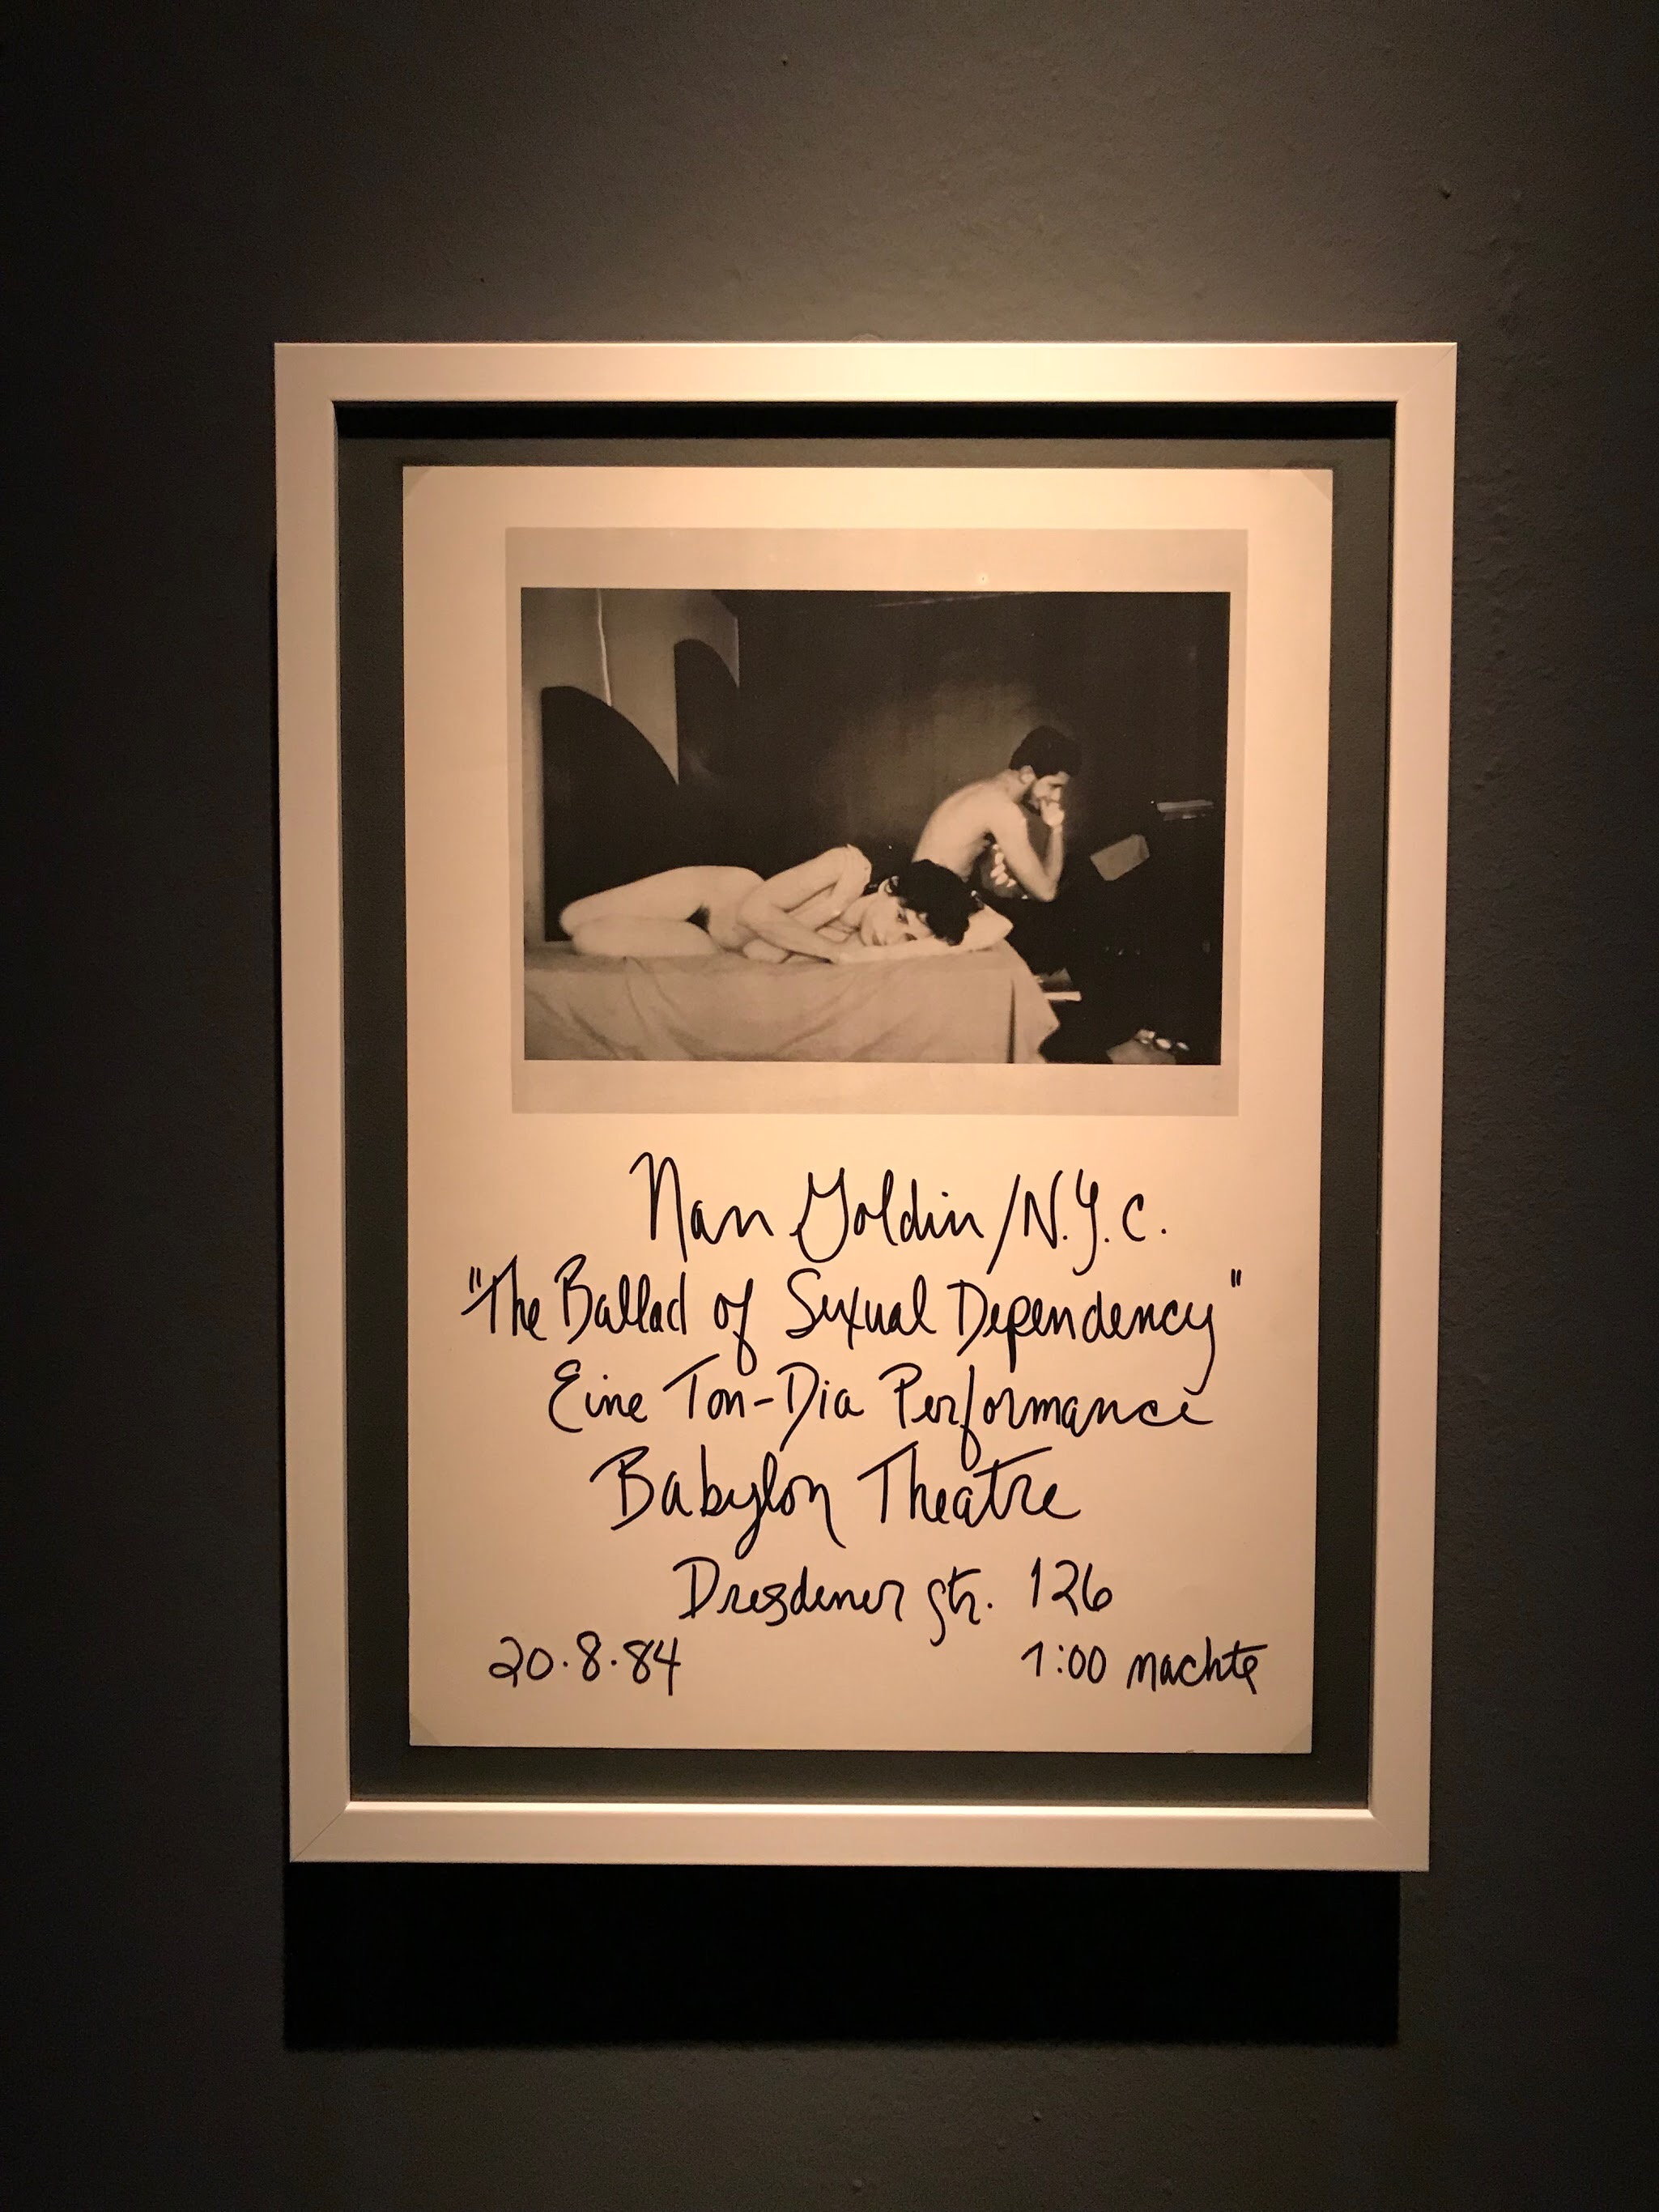 Nan Goldin/N.Y.C.
"The Ballad of Sexual Dependency"
Eine Ton-Dia Performance
Babylon Theatre
Dresdener Str. 126
20.8.84 1:00 nachts